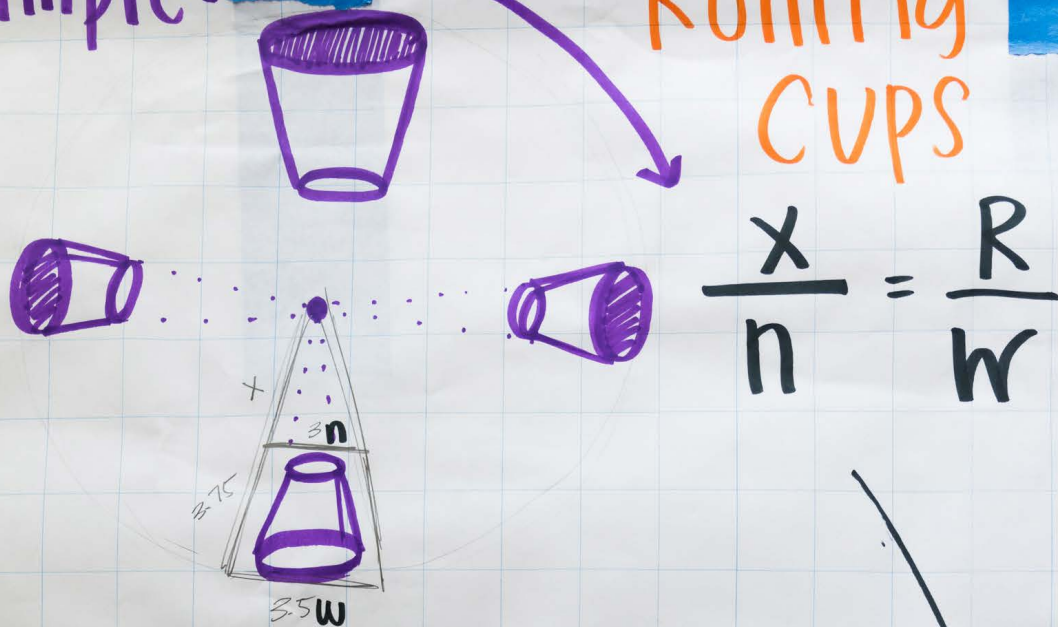 Rolling
CUPS
x
n
=
R
W
x
3 n
3.75
3.5 W